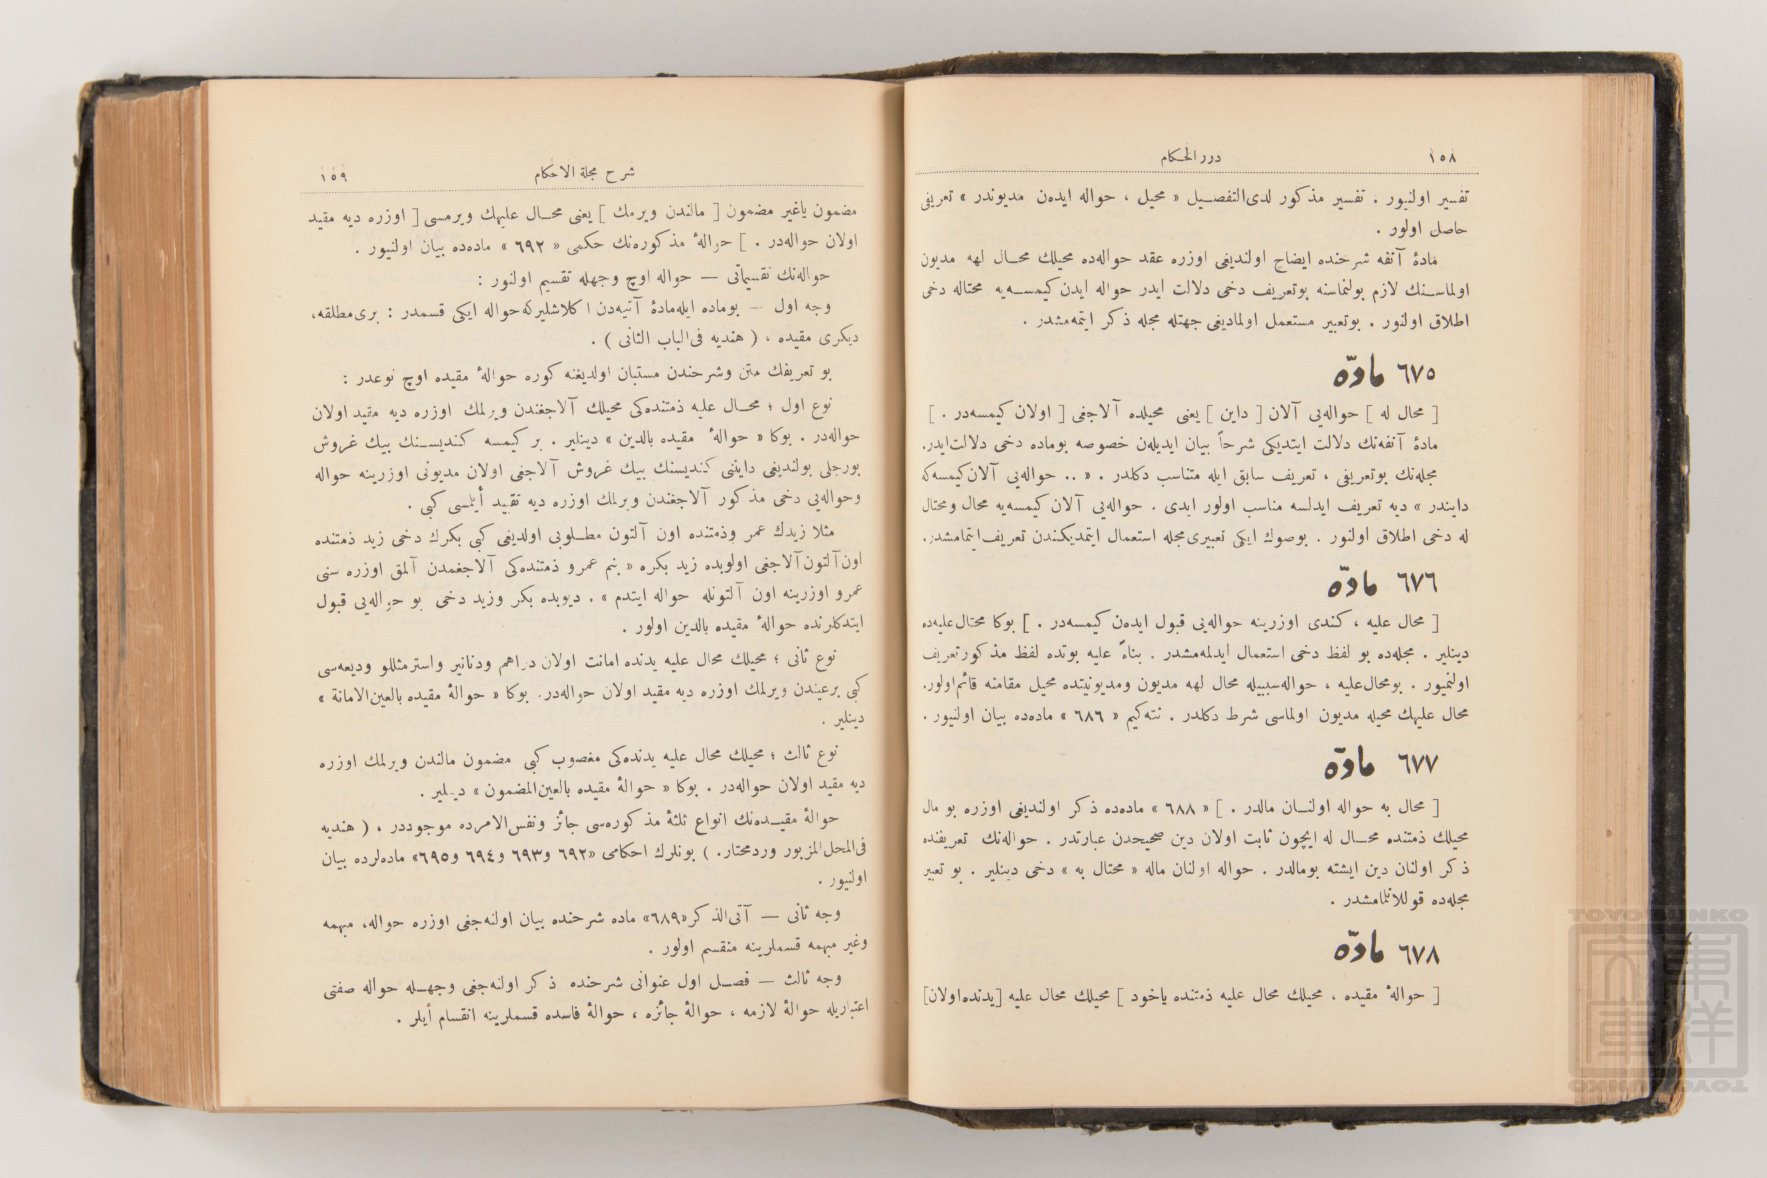 ١٥٨
درر الحكام
تفسير اولنيور . تفسير مذكور لدى‌التفصيل « محيل ، حواله ايدەن مديوندر » تعريفى
حاصل اولور .
مادۀ آنفه شرحنده ايضاح اولنديغى اوزره عقد حواله‌ده محيلك محال لهه مديون
اولماسنك لازم بولنماسنه بوتعريف دخى دلالت ايدر حواله ايدن كيمسه‌يه محتاله دخى
اطلاق اولنور . بوتعبير مستعمل اولماديغى جهتله مجله ذكر ايتمه‌مشدر .
٦٧٥ مادّه
[ محال له ] حواله‌يى آلان [ داين ] يعنى محيلده آلاجغى [ اولان كيمسه‌در . ]
مادۀ آنفه‌نك دلالت ايتديكى شرحاً بيان ايديلەن خصوصه بوماده دخى دلالت‌ايدر.
مجله‌نك بوتعريفى ، تعريف سابق ايله متناسب دكلدر . « .. حواله‌يى آلان‌كيمسه‌كه
دايندر » ديه تعريف ايدلسه مناسب اولور ايدى . حواله‌يى آلان كيمسه‌يه محال ومحتال
له دخى اطلاق اولنور . بوصوك ايكى تعبيرى‌مجله استعمال ايتمديكندن تعريف‌ايتمامشدر.
٦٧٦ مادّه
[ محال عليه ، كندى اوزرينه حواله‌يى قبول ايدەن كيمسه‌در . ] بوكا محتال‌عليه‌ده
دينلير . مجله‌ده بو لفظ دخى استعمال ايدلمه‌مشدر . بناءً عليه بوتده لفظ مذكورتعريف
اولنميور . بومحال‌عليه ، حواله‌سببيله محال لهه مديون ومديونيتده محيل مقامنه قائم‌اولور.
محال عليهك محيله مديون اولماسى شرط دكلدر . نته‌كيم « ٦٨٦ » ماده‌ده بيان اولنيور .
٦٧٧ مادّه
[ محال به حواله اولنان مالدر . ] « ٦٨٨ » ماده‌ده ذكر اولنديغى اوزره بو مال
محيلك ذمتنده محال له ايچون ثابت اولان دين صحيحدن عبارتدر . حواله‌نك تعريفنده
ذكر اولنان دين ايشته بومالدر . حواله اولنان ماله « محتال به » دخى دينلير . بو تعبير
مجله‌ده قوللانلمامشدر .
٦٧٨ مادّه
[ حوالۀ مقيده ، محيلك محال عليه ذمتنده ياخود ] محيلك محال عليه [يدنده‌اولان]
شرح مجلة الاحكام
١٥٩
مضمون ياغير مضمون [ مالندن ويرمك ] يعنى محال عليهك ويرمسى [ اوزره ديه مقيد
اولان حواله‌در . ] حوالۀ مذكوره‌نك حكمى « ٦٩٢ » ماده‌ده بيان اولنيور .
حواله‌نك تقسيماتى — حواله اوچ وجهله تقسيم اولنور :
وجه اول — بوماده ايله‌مادۀ آتيه‌دن اكلاشليركه‌حواله ايكى قسمدر : برى‌مطلقه،
ديكرى مقيده ، ( هنديه فى‌الباب الثانى ) .
بو تعريفك متن وشرحندن مستبان اولديغنه كوره حوالۀ مقيده اوچ نوعدر :
نوع اول ؛ محال عليه ذمتنده‌كى محيلك آلاجغندن ويرلمك اوزره ديه مقيد اولان
حواله‌در . بوكا « حوالۀ مقيده بالدين » دينلير . بر كيمسه كنديسنك بيك غروش
بورجلى بولنديغى داينى كنديسنك بيك غروش آلاجغى اولان مديونى اوزرينه حواله
وحواله‌يى دخى مذكور آلاجغندن ويرلمك اوزره ديه تقييد أيلمسى كبى .
مثلا زيدك عمر وذمتنده اون آلتون مطلوبى اولديغى كبى بكرك دخى زيد ذمتنده
اون‌آلتون‌آلاجغى اولوبده زيد بكره « بنم عمرو ذمتنده‌كى آلاجغمدن آلمق اوزره سنى
عمرو اوزرينه اون آلتونله حواله ايتدم » . ديوبده بكر وزيد دخى بو حواله‌يى قبول
ايتدكلرنده حوالۀ مقيده بالدين اولور .
نوع ثانى ؛ محيلك محال عليه يدنده امانت اولان دراهم ودنانير واسترمثللو وديعه‌سى
كبى برعيندن ويرلمك اوزره ديه مقيد اولان حواله‌در. بوكا « حوالۀ مقيده بالعين‌الامانة »
دينلير .
نوع ثالث ؛ محيلك محال عليه يدنده‌كى مغصوب كبى مضمون مالندن ويرلمك اوزره
ديه مقيد اولان حواله‌در . بوكا « حوالۀ مقيده بالعين‌المضمون » دينلير .
حوالۀ مقيده‌نك انواع ثلثۀ مذكوره‌سى جائز ونفس‌الامرده موجوددر ، ( هنديه
فى‌المحل‌المزبور وردمحتار. ) بونلرك احكامى «٦٩٢ و٦٩٣ و٦٩٤ و٦٩٥» ماده‌لرده بيان
اولنيور .
وجه ثانى — آتى‌الذكر«٦٨٩» ماده شرحنده بيان اولنه‌جغى اوزره حواله، مبهمه
وغير مبهمه قسملرينه منقسم اولور .
وجه ثالث — فصل اول عنوانى شرحنده ذكر اولنه‌جغى وجهله حواله صفتى
اعتباريله حوالۀ لازمه ، حوالۀ جائزه ، حوالۀ فاسده قسملرينه انقسام أيلر .
TOYO BUNKO
東洋文庫
TOYO BUNKO